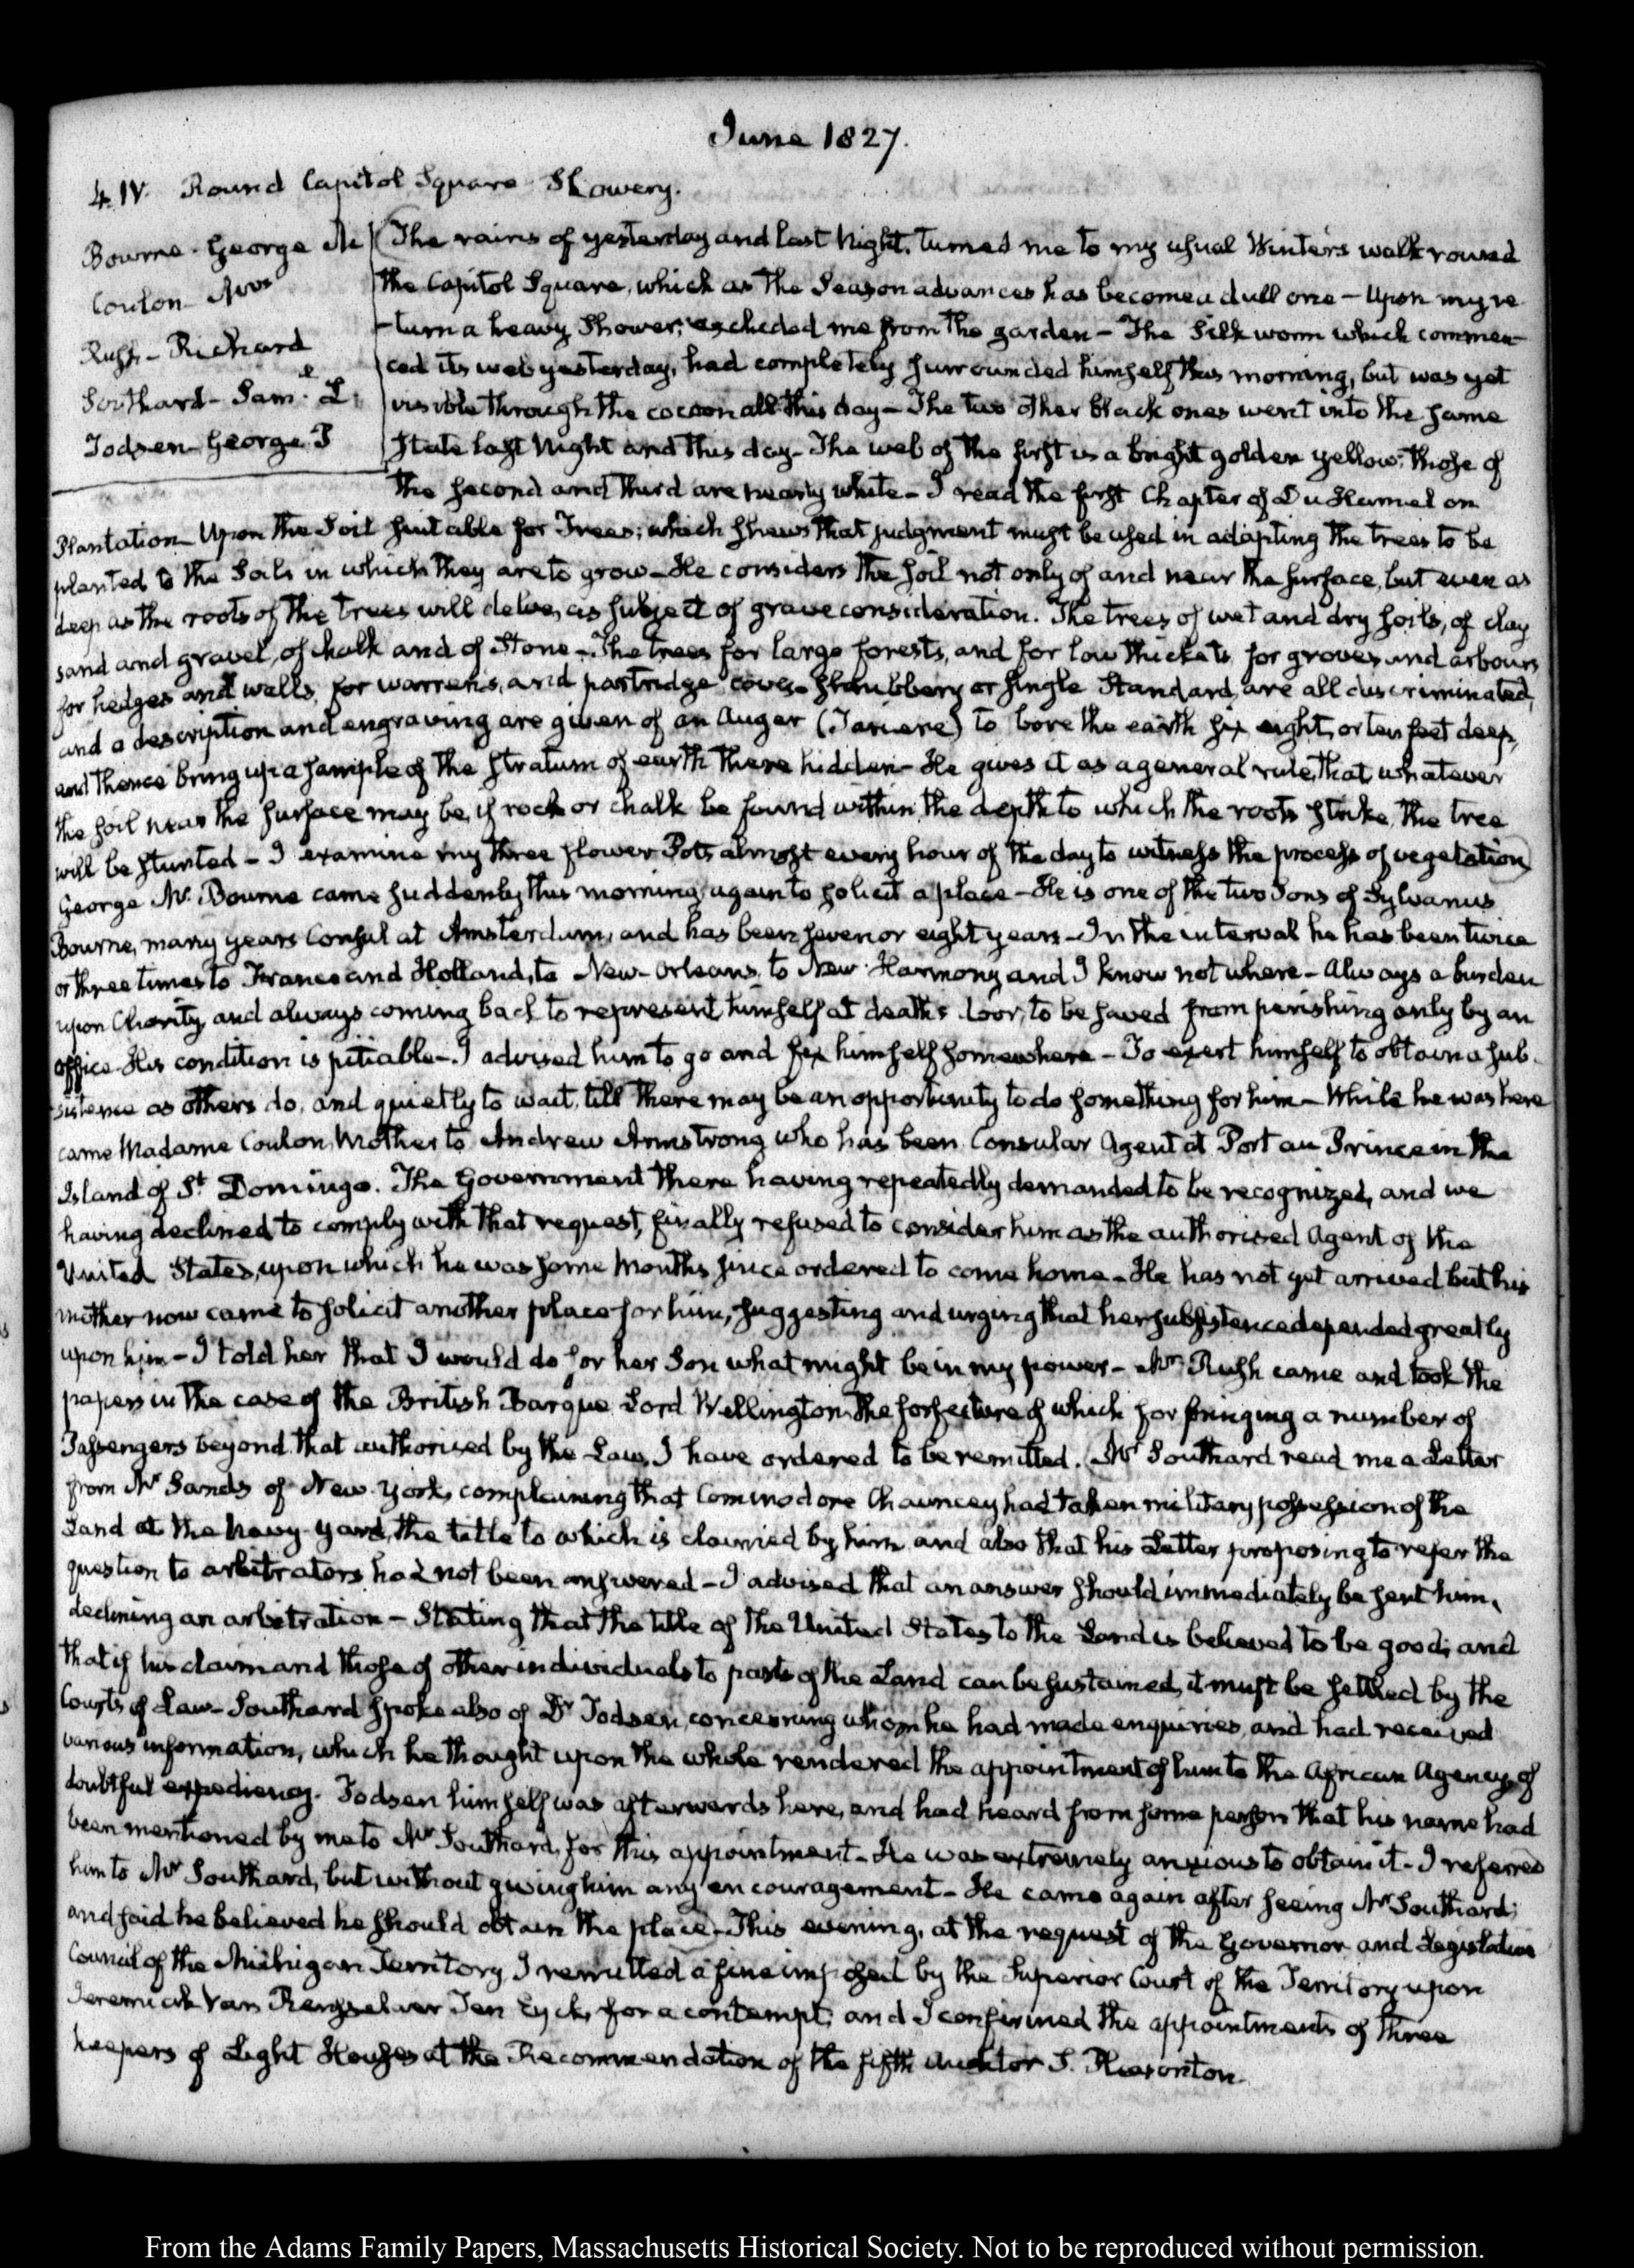 June 1827.
4. IV. Round Capitol Square. Showery.
Bourne. George M
Coulon Mrs
Rush- Richard
Southard- Saml. L.
Todsen- George P
The rains of yesterday and last Night, turned me to my usual Winter's walk round
the Capitol Square, which as the Season advances has become a dull one – Upon my re
-turn a heavy Shower, excluded me from the garden – The Silk worm which commen-
ced its web yesterday, had completely surrounded himself this morning, but was yet
visible through the cocoon all this day – The two other black ones went into the same
state last Night and this day – The web of the first is a bright golden yellow; those of
the second and third are nearly white – I read the first Chapter of Du Hamel on
Plantation – Upon the Soil suitable for Trees; which shews that judgment must be used in adapting the trees to be
planted to the Soils in which they are to grow – He considers the soil not only of and near the surface, but even as
deep as the roots of the trees will delve, as subject of grave consideration. The trees of wet and dry soils, of clay
sand and gravel, of chalk and of Stone – The trees for large forests, and for low thickets, for groves and arbours
for hedges and walls, for warrens, and partridge coves – shrubbery or single Standard, are all discriminated,
and a description and engraving are given of an Auger (Tariere) to bore the earth six eight, or ten feet deep,
and thence bring up a sample of the stratum of earth there hidden – He gives it as a general rule, that whatever
the soil near the surface may be, if rock or chalk be found within the depth to which the roots strike, the tree
will be stunted – I examine my three flower Pots almost every hour of the day to witness the process of vegetation)
George M. Bourne came suddenly this morning, again to solicit a place – He is one of the two Sons of Sylvanus
Bourne, many years Consul at Amsterdam, and has been seven or eight years – In the interval he has been twice
or three times to France and Holland, to New-Orleans, to New Harmony and I know not where – Always a burden
upon Charity, and always coming back to represent himself at death's door, to be saved from perishing only by an
office – His condition is pitiable – I advised him to go and fix himself somewhere – To exert himself to obtain a sub-
-sistence as others do, and quietly to wait, till there may be an opportunity to do something for him – While he was here
came Madame Coulon, Mother to Andrew Armstrong who has been Consular Agent at Port au Prince in the
Island of St. Domingo. The Government there having repeatedly demanded to be recognized, and we
having declined to comply with that request, finally refused to consider him as the authorised Agent of the
United States, upon which he was some Months since ordered to come home – He has not yet arrived but his
mother now came to solicit another place for him, suggesting and urging that her subsistence depended greatly
upon him – I told her that I would do for her Son what might be in my power – Mr. Rush came and took the
papers in the case of the British Barque Lord Wellington, the forfeiture of which for bringing a number of
Passengers beyond that authorised by the Law, I have ordered to be remitted. Mr Southard read me a Letter
from Mr Sands of New York, complaining that Commodore Chauncey had taken military possession of the
Land at the Navy-Yard, the title to which is claimed by him and also that his Letter proposing to refer the
question to arbitrators had not been answered – I advised that an answer should immediately be sent him,
declining an arbitration – Stating that the title of the United States to the Land is believed to be good; and
that if his claim and those of other individuals to parts of the Land can be sustained, it must be settled by the
Courts of Law – Southard spoke also of Dr Todsen, concerning whom he had made enquiries, and had received
various information, which he thought upon the whole rendered the appointment of him to the African Agency, of
doubtful expediency. Todsen himself was afterwards here, and had heard from some person that his name had
been mentioned by me to Mr Southard, for this appointment – He was extremely anxious to obtain it – I referred
him to Mr Southard, but without giving him any encouragement – He came again after seeing Mr Southard;
and said he believed he should obtain the place – This evening, at the request of the Governor and Legislative
Council of the Michigan Territory, I remitted a fine imposed by the Superior Court of the Territory upon
Jeremiah Van Rensselaer Ten Eyck, for a contempt; and I confirmed the appointments of three
keepers of Light Houses at the Recommendation of the fifth Auditor S. Pleasonton.
From the Adams Family Papers, Massachusetts Historical Society. Not to be reproduced without permission.